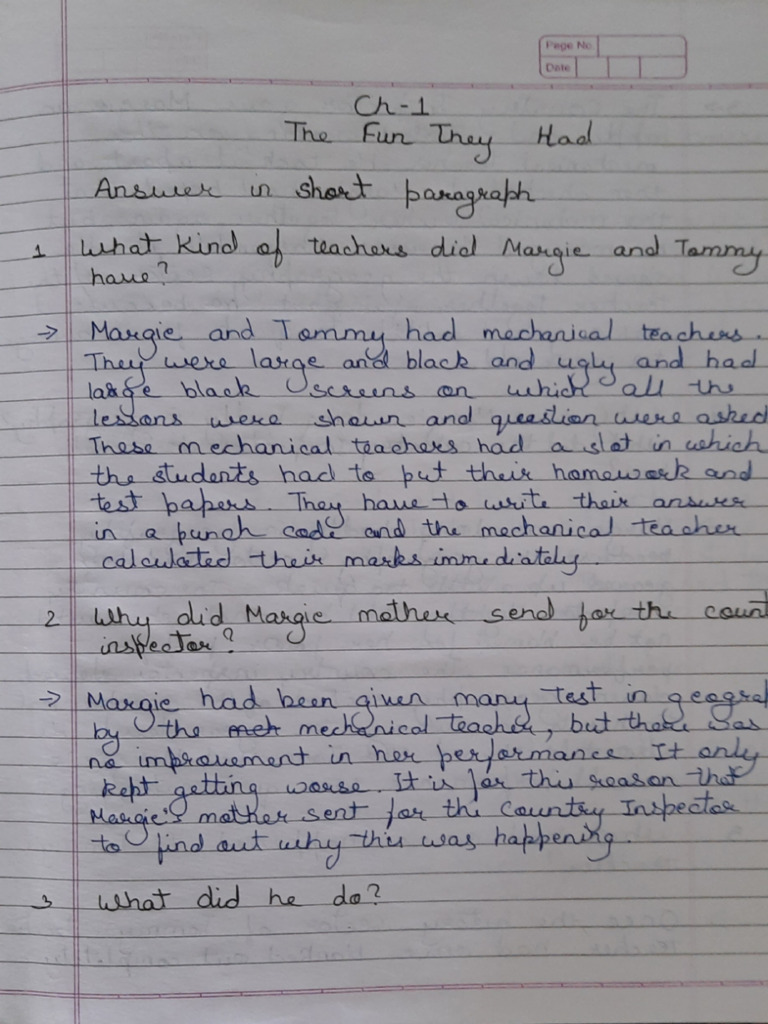 Page No.
Date
Ch-1
The Fun They Had
Answer in short paragraph
1 What kind of teachers did Margie and Tommy
have?
→ Margie and Tommy had mechanical teachers.
They were large and black and ugly and had
large black screens on which all the
lessons were shown and question were asked
These mechanical teachers had a slot in which
the students had to put their homework and
test papers. They have to write their answer
in a punch code and the mechanical teacher
calculated their marks immediately.
2 Why did Margie mother send for the count
inspector?
→ Margie had been given many Test in geogra
by the mech mechanical teacher, but there was
no improvement in her performance. It only
kept getting worse. It is for this reason that
Margie's mother sent for the Country Inspector
to find out why this was happening.
3 What did he do?